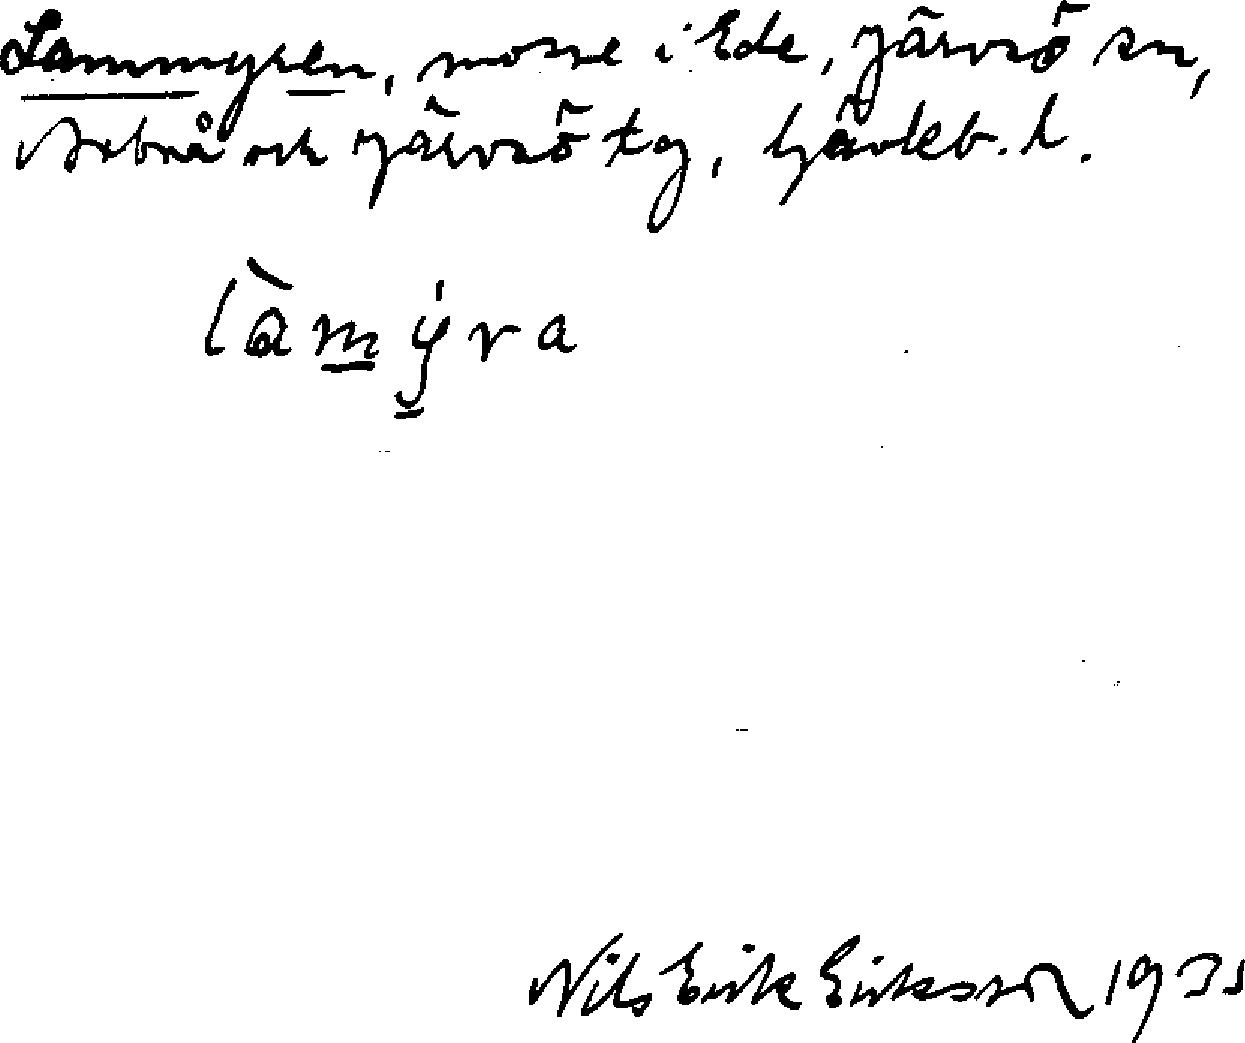 Lammyren, mosse i Ede, Järvsö sn,
Arbrå och Järvsö tg, Gävleb. l.
làmyra
Nils Erik Eriksson 1935